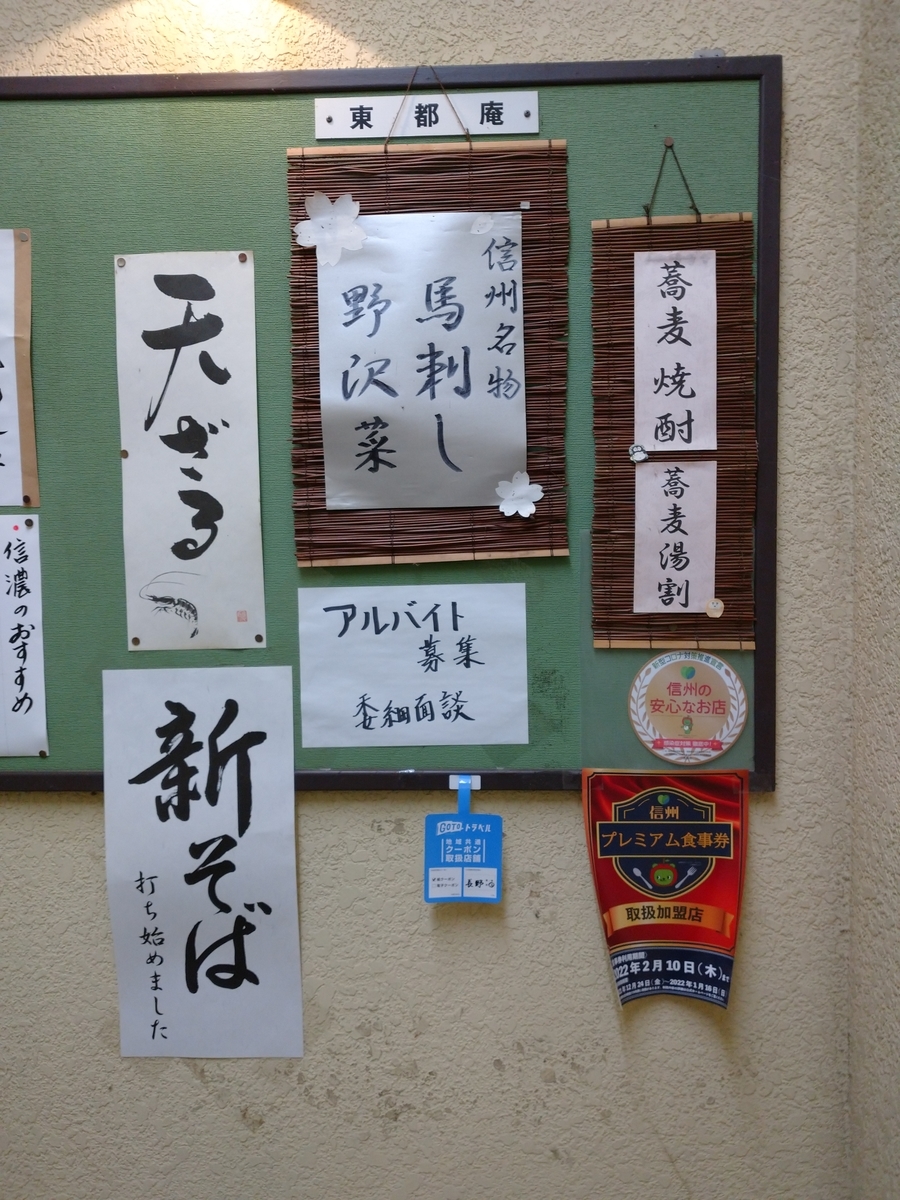 東都庵
信州名物
馬刺し
野沢菜
蕎麦焼酎
蕎麦湯割
天ざる
信濃のおすすめ
アルバイト
募集
委細面談
新そば
打ち始めました
新型コロナ対策推進宣言
信州の
安心なお店
GOTOトラベル
地域共通
クーポン
取扱店舗
信州
プレミアム食事券
取扱加盟店
2022年2月10日(木)まで
12月24日(金)~2022年1月16日(日)